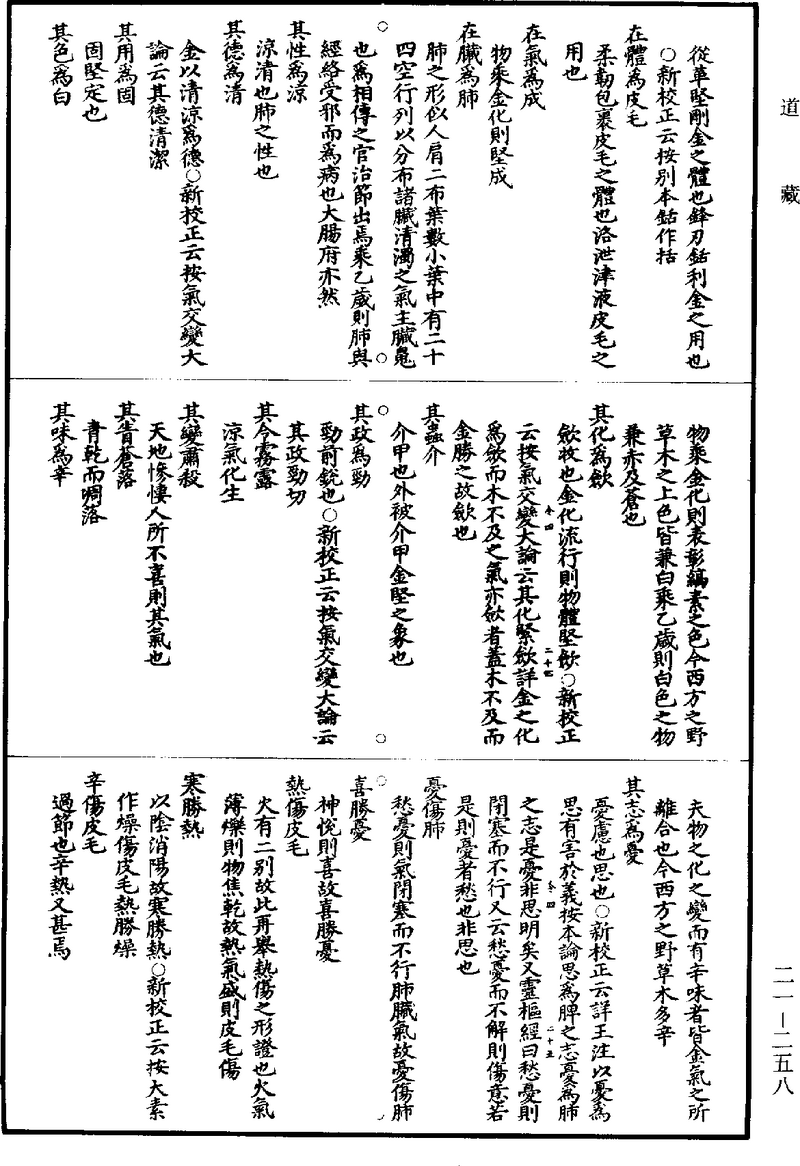 道藏
從革堅剛金之體也鋒刃銛利金之用也
○新校正云按別本銛作括
在體為皮毛
柔韌包裹皮毛之體也洛泄津液皮毛之
用也
在氣為成
物乘金化則堅成
在臟為肺
肺之形似人肩二布葉數小葉中有二十
四空行列以分布諸臟清濁之氣主臟䰟
也為相傳之官治節出焉乘乙歲則肺與
經絡受邪而為病也大腸府亦然
其性為涼
涼清也肺之性也
其德為清
金以清涼為德○新校正云按氣交變大
論云其德清潔
其用為固
固堅定也
其色為白
物乘金化則表彰縞素之色今西方之野
草木之上色皆兼白乘乙歲則白色之物
兼赤及蒼也
其化為歛
歛收也金化流行則物體堅歛○新校正
云按氣交變大論云其化緊歛詳金之化
為歛而木不及之氣亦歛者蓋木不及而
金勝之故歛也
其蟲介
介甲也外被介甲金堅之象也
其政為勁
勁前銳也○新校正云按氣交變大論云
其政勁切
其令霧露
涼氣化生
其變肅殺
天地慘悽人所不喜則其氣也
其眚蒼落
青乾而凋落
其味為辛
夫物之化之變而有辛味者皆金氣之所
離合也今西方之野草木多辛
其志為憂
憂慮也思也○新校正云詳王注以憂為
思有害於義按本論思為脾之志憂為肺
之志是憂非思明矣又靈樞經曰愁憂則
閉塞而不行又云愁憂而不解則傷意若
是則憂者愁也非思也
憂傷肺
愁憂則氣閉塞而不行肺臟氣故憂傷肺
喜勝憂
神悅則喜故喜勝憂
熱傷皮毛
火有二別故此再舉熱傷之形證也火氣
薄爍則物焦乾故熱氣盛則皮毛傷
寒勝熱
以陰消陽故寒勝熱○新校正云按大素
作燥傷皮毛熱勝燥
辛傷皮毛
過節也辛熱又甚焉
二一—二五八